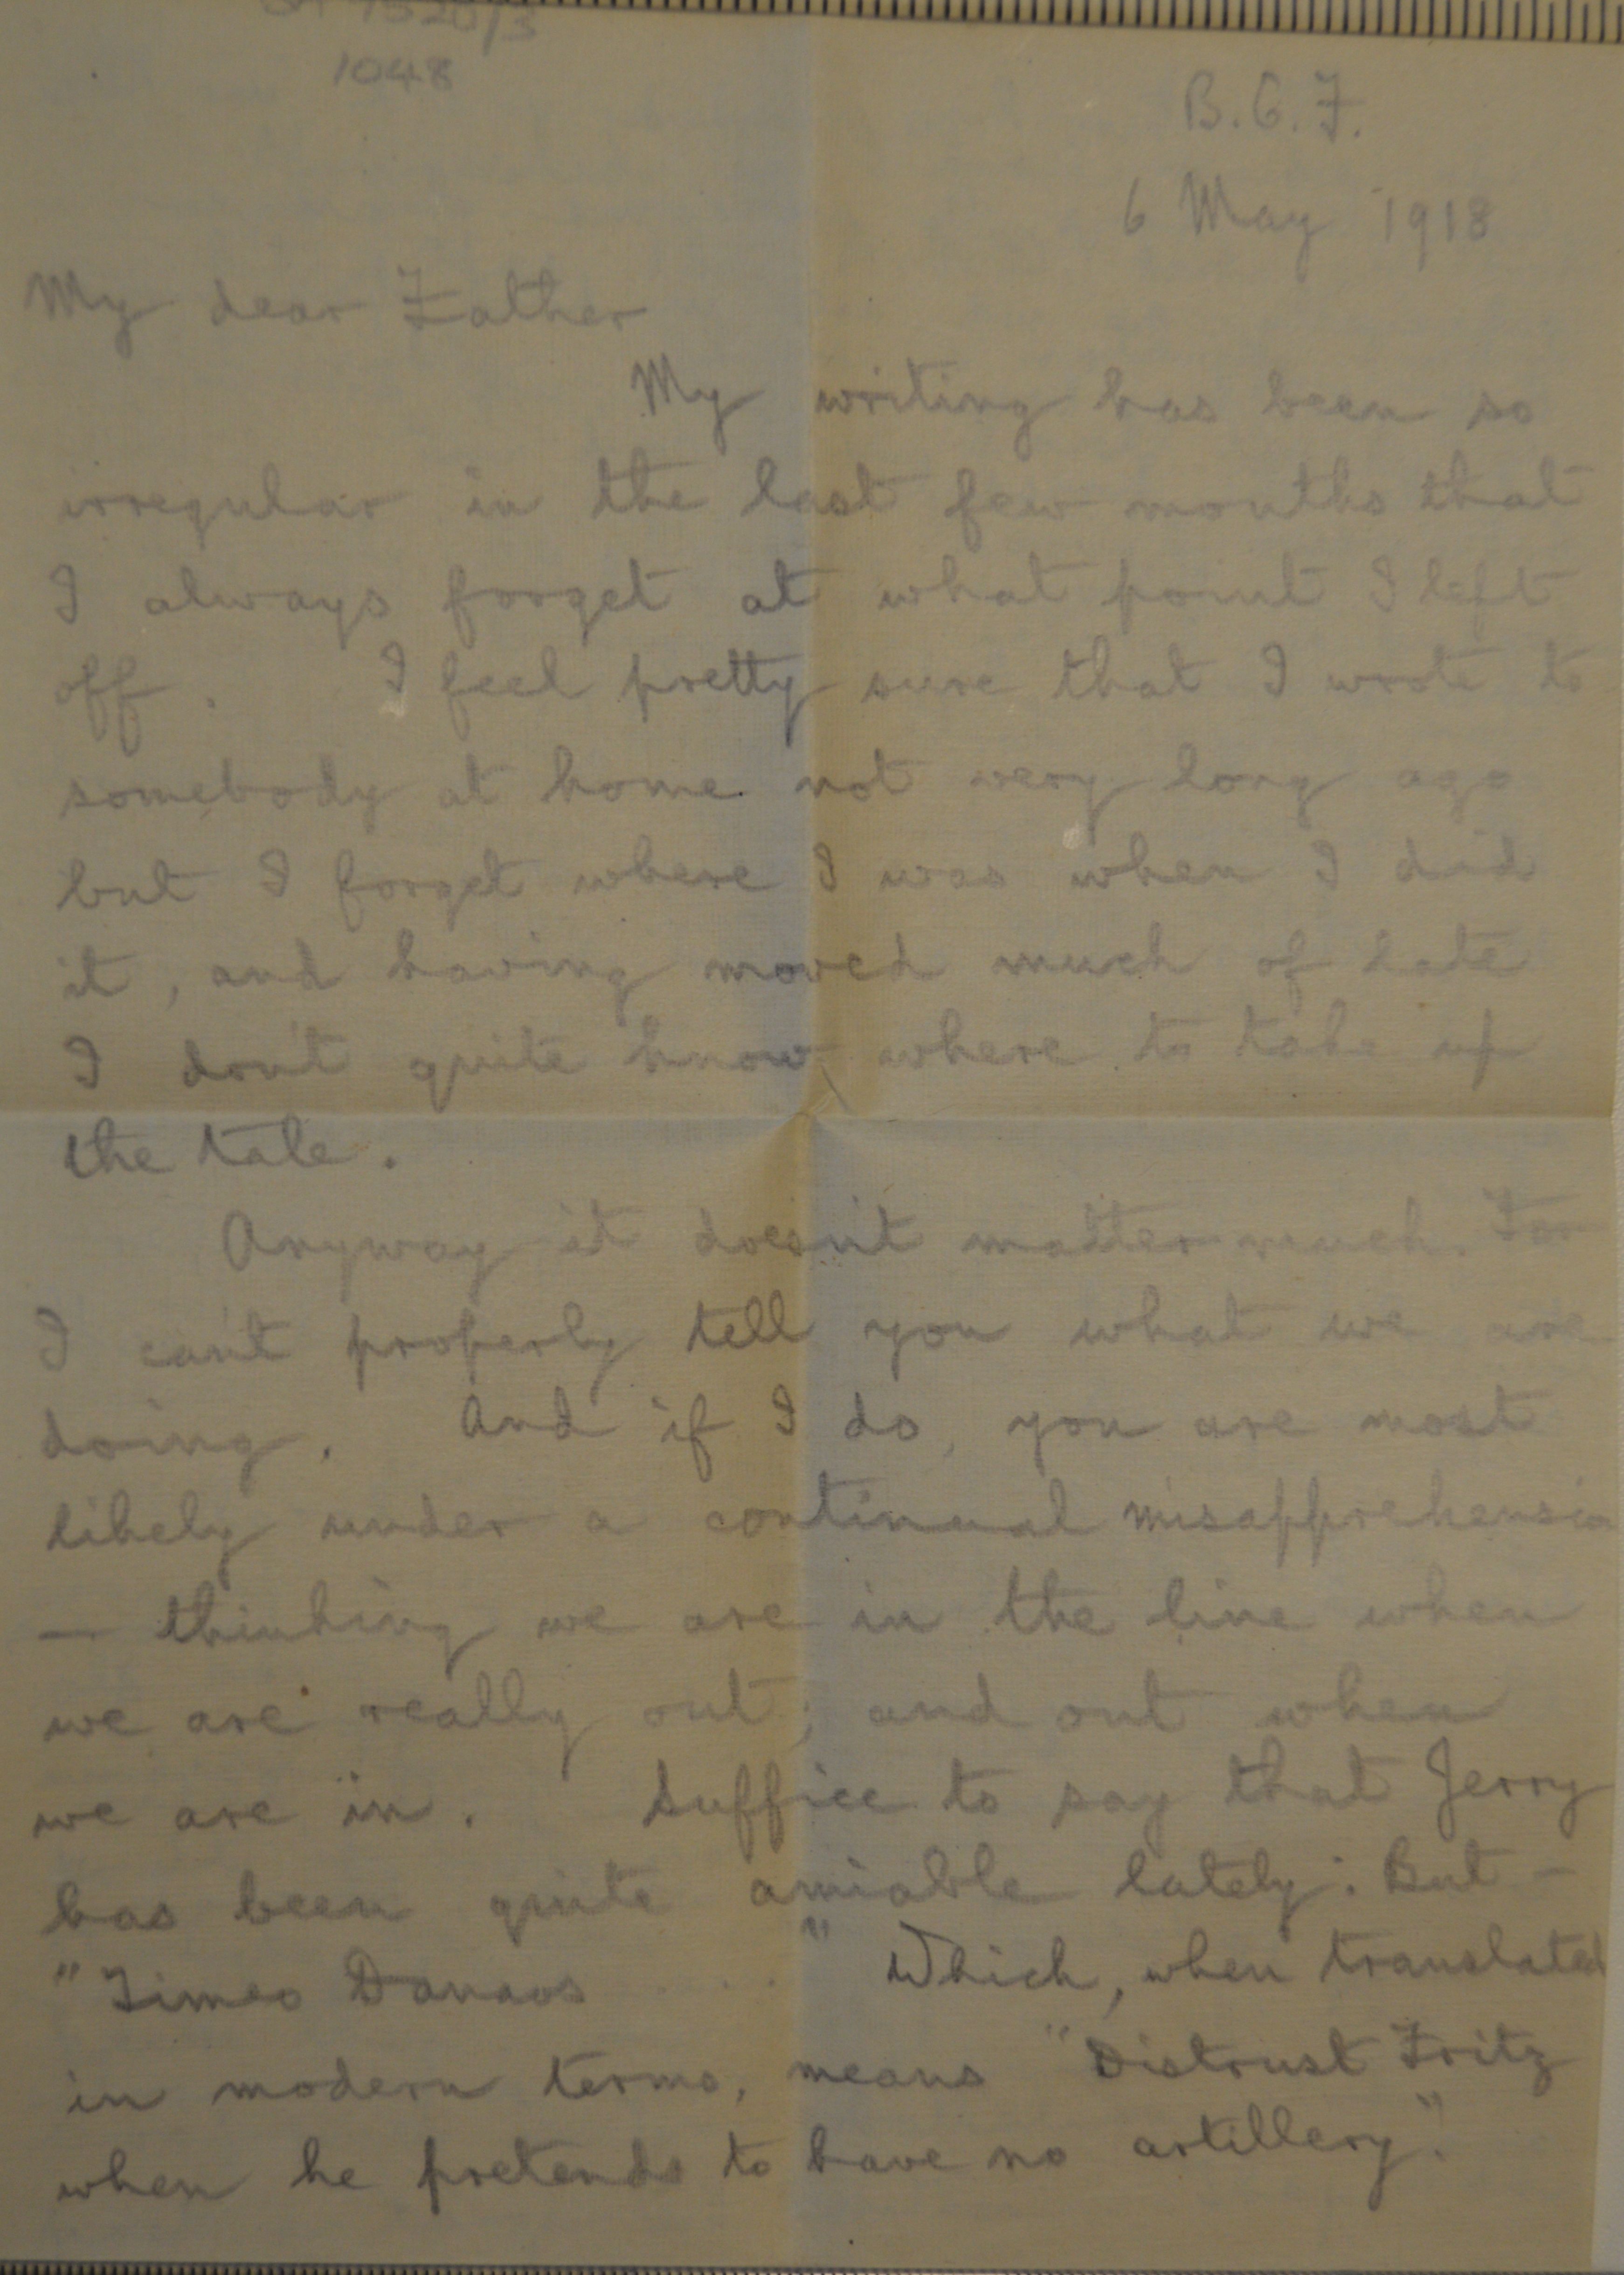 1520/3
1048
B.E.F.
6 May 1918
My dear Father
My writing has been so
irregular in the last few months that
I always forget at what point I left
off. I feel pretty sure that I wrote to
somebody at home not very long ago
but I forget where I was when I did
it, and having moved much of late
I don't quite know where to take up
the tale.
Anyway it doesn't matter much. For
I can't properly tell you what we are
doing. And if I do, you are most
likely under a continual misapprehension
— thinking we are in the line when
we are really out; and out when
we are in. Suffice to say that Jerry
has been quite amiable lately: But —
"Timeo Danaos . . . . " Which, when translated
in modern terms, means "Distrust Fritz
when he pretends to have no artillery".